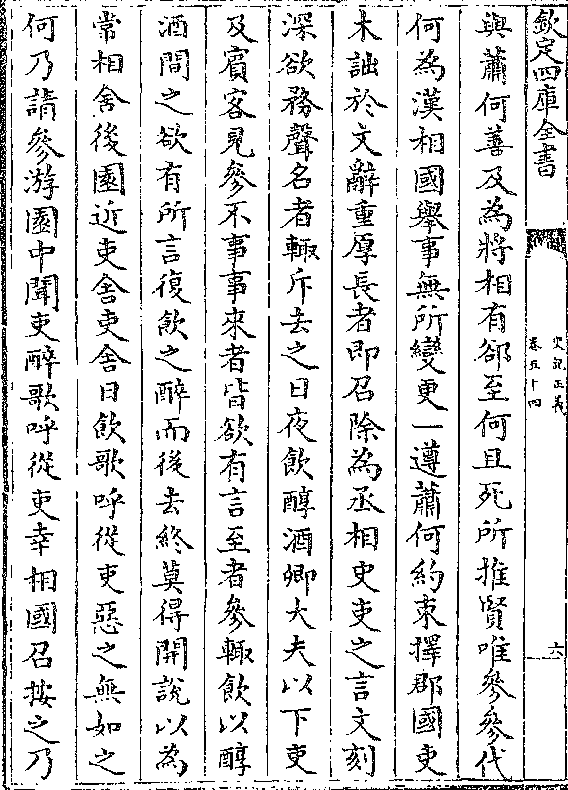 欽定四庫全書
史記正義
卷五十四
六
與蕭何善及為將相有郤至何且死所推賢唯參參代
何為漢相國舉事無所變更一遵蕭何約束擇郡國吏
木詘於文辭重厚長者即召除為丞相史吏之言文刻
深欲務聲名者輙斥去之日夜飲醇酒卿大夫以下吏
及賓客見參不事事來者皆欲有言至者參輙飲以醇
酒間之欲有所言復飲之醉而後去終莫得開說以為
常相舍後園近吏舍吏舍日飲歌呼從吏惡之無如之
何乃請參游園中聞吏醉歌呼從吏幸相國召按之乃